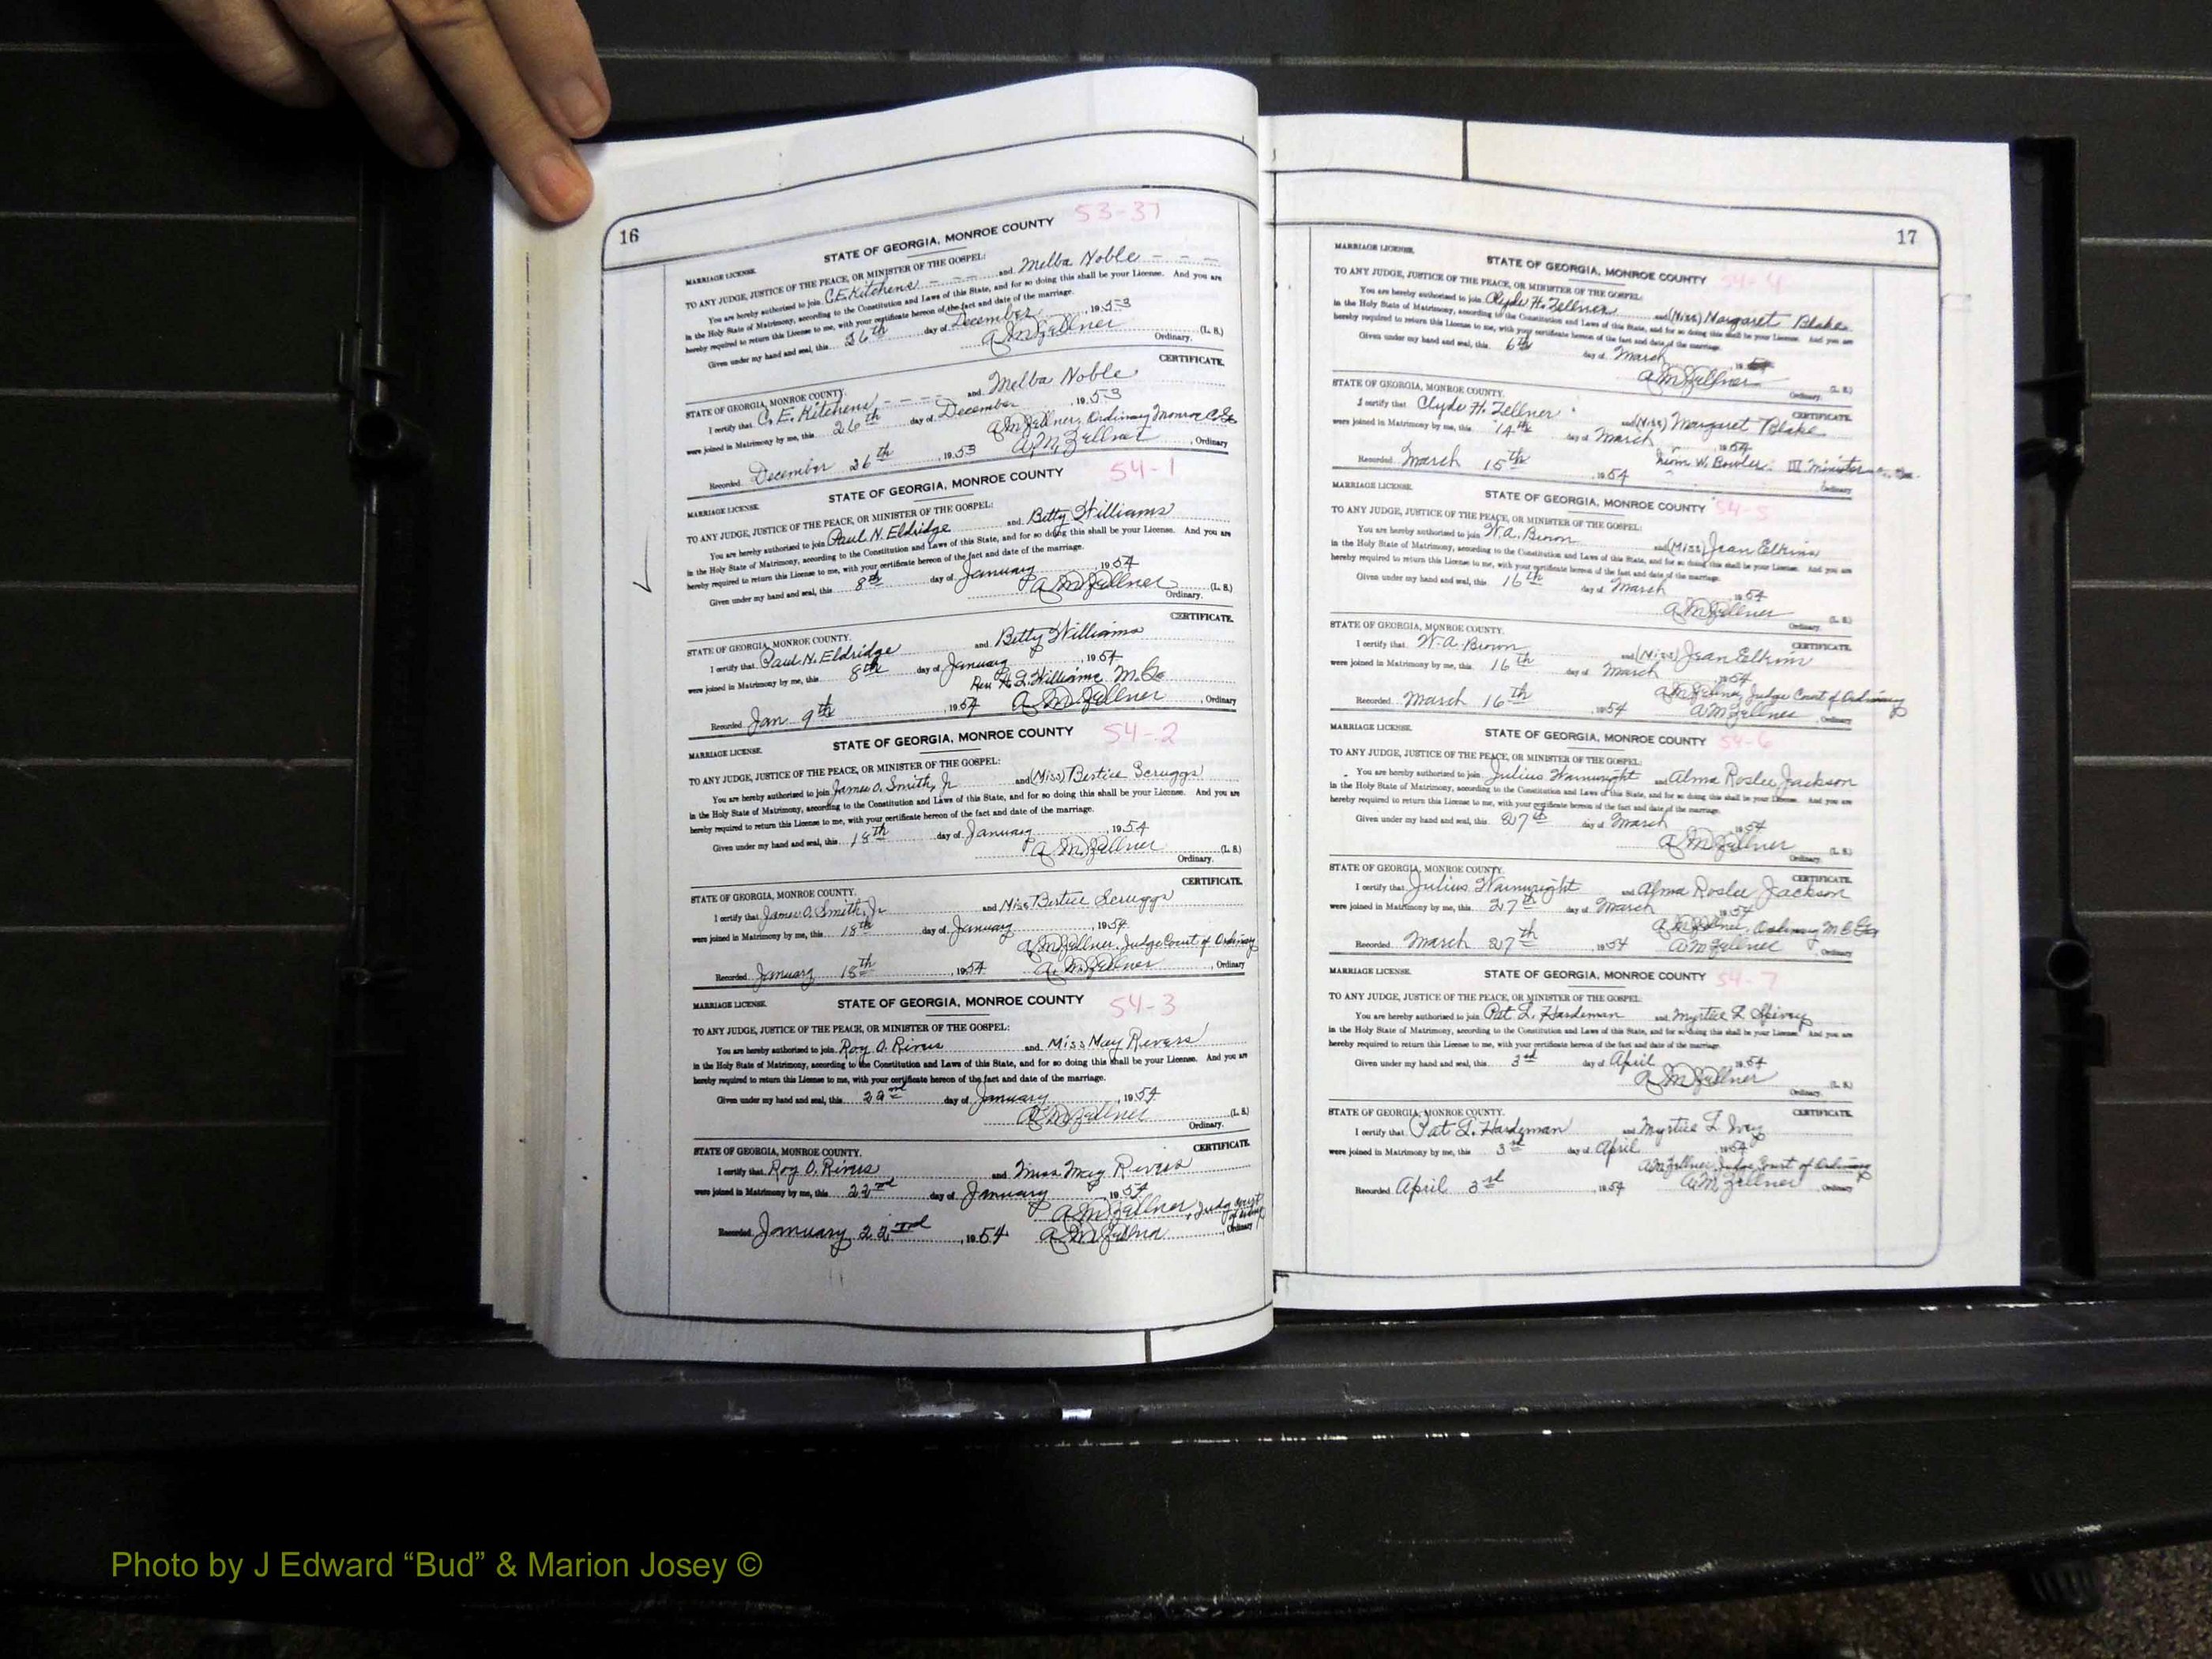 16
53-37
STATE OF GEORGIA, MONROE COUNTY
MARRIAGE LICENSE.
TO ANY JUDGE, JUSTICE OF THE PEACE, OR MINISTER OF THE GOSPEL:
You are hereby authorized to join C.E. Kitchens and Melba Noble
in the Holy State of Matrimony, according to the Constitution and Laws of this State, and for so doing this shall be your License. And you are
hereby required to return this License to me, with your certificate hereon of the fact and date of the marriage.
Given under my hand and seal, this 26th day of December, 1953
A.M. Zellner (L. S.)
Ordinary.
CERTIFICATE.
STATE OF GEORGIA, MONROE COUNTY.
I certify that C. E. Kitchens and Melba Noble
were joined in Matrimony by me, this 26th day of December, 1953
A.M. Zellner, Ordinary Monroe Co Ga
Recorded December 26th, 1953 A.M. Zellner, Ordinary
54-1
STATE OF GEORGIA, MONROE COUNTY
MARRIAGE LICENSE.
TO ANY JUDGE, JUSTICE OF THE PEACE, OR MINISTER OF THE GOSPEL:
You are hereby authorized to join Paul N. Eldridge and Betty Williams
in the Holy State of Matrimony, according to the Constitution and Laws of this State, and for so doing this shall be your License. And you are
hereby required to return this License to me, with your certificate hereon of the fact and date of the marriage.
Given under my hand and seal, this 8th day of January, 1954
A.M. Zellner (L. S.)
Ordinary.
CERTIFICATE.
STATE OF GEORGIA, MONROE COUNTY.
I certify that Paul N. Eldridge and Betty Williams
were joined in Matrimony by me, this 8th day of January, 1954
Rev. Williams M.G.
Recorded Jan 9th, 1954 A.M. Zellner, Ordinary
54-2
MARRIAGE LICENSE. STATE OF GEORGIA, MONROE COUNTY
TO ANY JUDGE, JUSTICE OF THE PEACE, OR MINISTER OF THE GOSPEL:
You are hereby authorized to join James O. Smith, Jr and (Miss) Bertice Scruggs
in the Holy State of Matrimony, according to the Constitution and Laws of this State, and for so doing this shall be your License. And you are
hereby required to return this License to me, with your certificate hereon of the fact and date of the marriage.
Given under my hand and seal, this 18th day of January, 1954
A.M. Zellner (L. S.)
Ordinary.
CERTIFICATE.
STATE OF GEORGIA, MONROE COUNTY.
I certify that James O. Smith, Jr and Miss Bertice Scruggs
were joined in Matrimony by me, this 18th day of January, 1954
A.M. Zellner, Judge Court of Ordinary
Recorded January 18th, 1954 A.M. Zellner, Ordinary
54-3
MARRIAGE LICENSE. STATE OF GEORGIA, MONROE COUNTY
TO ANY JUDGE, JUSTICE OF THE PEACE, OR MINISTER OF THE GOSPEL:
You are hereby authorized to join Roy O. Rivers and Miss May Rivers
in the Holy State of Matrimony, according to the Constitution and Laws of this State, and for so doing this shall be your License. And you are
hereby required to return this License to me, with your certificate hereon of the fact and date of the marriage.
Given under my hand and seal, this 22nd day of January, 1954
A.M. Zellner (L. S.)
Ordinary.
CERTIFICATE.
STATE OF GEORGIA, MONROE COUNTY.
I certify that Roy O. Rivers and Miss May Rivers
were joined in Matrimony by me, this 22nd day of January, 1954
A.M. Zellner, Judge Court of Ordinary
Recorded January 22nd, 1954 A.M. Zellner, Ordinary
17
MARRIAGE LICENSE. STATE OF GEORGIA, MONROE COUNTY 54-4
TO ANY JUDGE, JUSTICE OF THE PEACE, OR MINISTER OF THE GOSPEL:
You are hereby authorized to join Clyde H. Zellner and (Miss) Margaret Blake
in the Holy State of Matrimony, according to the Constitution and Laws of this State, and for so doing this shall be your License. And you are
hereby required to return this License to me, with your certificate hereon of the fact and date of the marriage.
Given under my hand and seal, this 6th day of March, 19
A.M. Zellner (L. S.)
Ordinary.
STATE OF GEORGIA, MONROE COUNTY. CERTIFICATE.
I certify that Clyde H. Zellner and (Miss) Margaret Blake
were joined in Matrimony by me, this 14th day of March, 1954
W. Bowler III Minister
Recorded March 15th, 1954 Ordinary
MARRIAGE LICENSE. STATE OF GEORGIA, MONROE COUNTY 54-5
TO ANY JUDGE, JUSTICE OF THE PEACE, OR MINISTER OF THE GOSPEL:
You are hereby authorized to join W.A. Brown and (Miss) Jean Elkins
in the Holy State of Matrimony, according to the Constitution and Laws of this State, and for so doing this shall be your License. And you are
hereby required to return this License to me, with your certificate hereon of the fact and date of the marriage.
Given under my hand and seal, this 16th day of March, 1954
A.M. Zellner (L. S.)
Ordinary.
STATE OF GEORGIA, MONROE COUNTY. CERTIFICATE.
I certify that W.A. Brown and (Miss) Jean Elkins
were joined in Matrimony by me, this 16th day of March, 1954
A.M. Zellner, Judge Court of Ordinary
Recorded March 16th, 1954 A.M. Zellner, Ordinary
MARRIAGE LICENSE. STATE OF GEORGIA, MONROE COUNTY 54-6
TO ANY JUDGE, JUSTICE OF THE PEACE, OR MINISTER OF THE GOSPEL:
You are hereby authorized to join Julius Wainwright and Alma Roslee Jackson
in the Holy State of Matrimony, according to the Constitution and Laws of this State, and for so doing this shall be your License. And you are
hereby required to return this License to me, with your certificate hereon of the fact and date of the marriage.
Given under my hand and seal, this 27th day of March, 1954
A.M. Zellner (L. S.)
Ordinary.
STATE OF GEORGIA, MONROE COUNTY. CERTIFICATE.
I certify that Julius Wainwright and Alma Roslee Jackson
were joined in Matrimony by me, this 27th day of March, 1954
A.M. Zellner, Ordinary M C Ga
Recorded March 27th, 1954 A.M. Zellner, Ordinary
MARRIAGE LICENSE. STATE OF GEORGIA, MONROE COUNTY 54-7
TO ANY JUDGE, JUSTICE OF THE PEACE, OR MINISTER OF THE GOSPEL:
You are hereby authorized to join Pat L. Hardeman and Myrtice L
in the Holy State of Matrimony, according to the Constitution and Laws of this State, and for so doing this shall be your License. And you are
hereby required to return this License to me, with your certificate hereon of the fact and date of the marriage.
Given under my hand and seal, this 3rd day of April, 1954
A.M. Zellner (L. S.)
Ordinary.
STATE OF GEORGIA, MONROE COUNTY. CERTIFICATE.
I certify that Pat L. Hardeman and Myrtice L Ivey
were joined in Matrimony by me, this 3rd day of April, 1954
A.M. Zellner Judge Court of Ordinary
Recorded April 3rd, 1954 A.M. Zellner Ordinary
Photo by J Edward “Bud” & Marion Josey ©